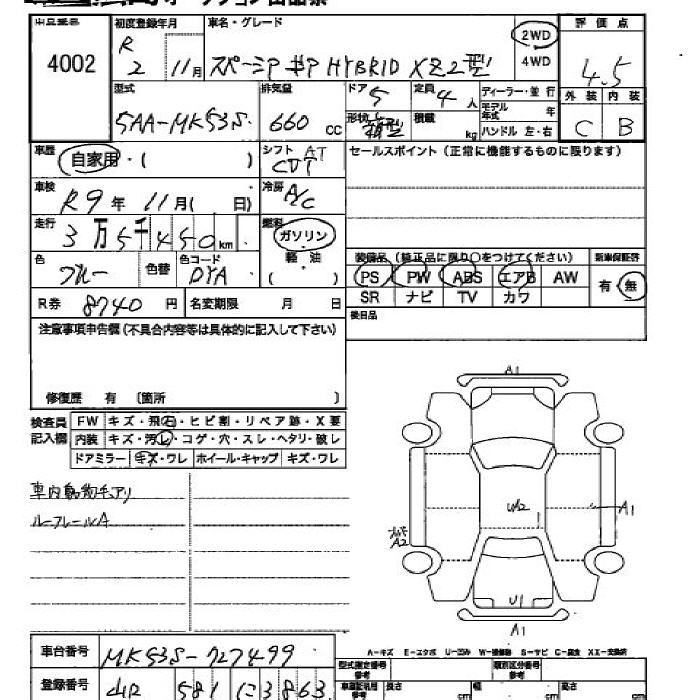 オークション出品票
出品番号 4002
初度登録年月 R 2 11月
車名・グレード スペーシア ギア HYBRID XZ2型
2WD 4WD
評価点 4.5
型式 5AA-MK53S
排気量 660 cc
ドア 5
形状
定員 4 人
積載 kg
ディーラー・並行
モデル年式 年
ハンドル 左・右
外装 C
内装 B
車歴 自家用・( )
シフト AT CVT
セールスポイント(正常に機能するものに限ります)
車検 R9年 11月( 日)
冷房 A/C
走行 3万5千450km
燃料 ガソリン・軽油 ( )
色 ブルー
色替
色コード DYA
装備品(純正品に限り○をつけてください)
新車保証書
PS PW ABS エアB AW
有・無
SR ナビ TV カワ
R券 8740 円
名変期限 月 日
後日品
注意事項申告欄(不具合内容等は具体的に記入して下さい)
修復歴 有 〔箇所 〕
検査員記入欄
FW キズ・飛石・ヒビ割・リペア跡・X要
内装 キズ・汚れ・コゲ・穴・スレ・ヘタリ・破レ
ドアミラー キズ・ワレ ホイール・キャップ キズ・ワレ
車内動物毛アリ
ルーフレールA
A1
U2
A1
A2
U1
A1
A-キズ E-エクボ U-凹み W-補修跡 S-サビ C-腐食 XX-交換済
車台番号 MK53S-727499
型式指定番号 参考
類別区分番号 参考
登録番号 581 に 3863
長さ cm
幅 cm
高さ cm